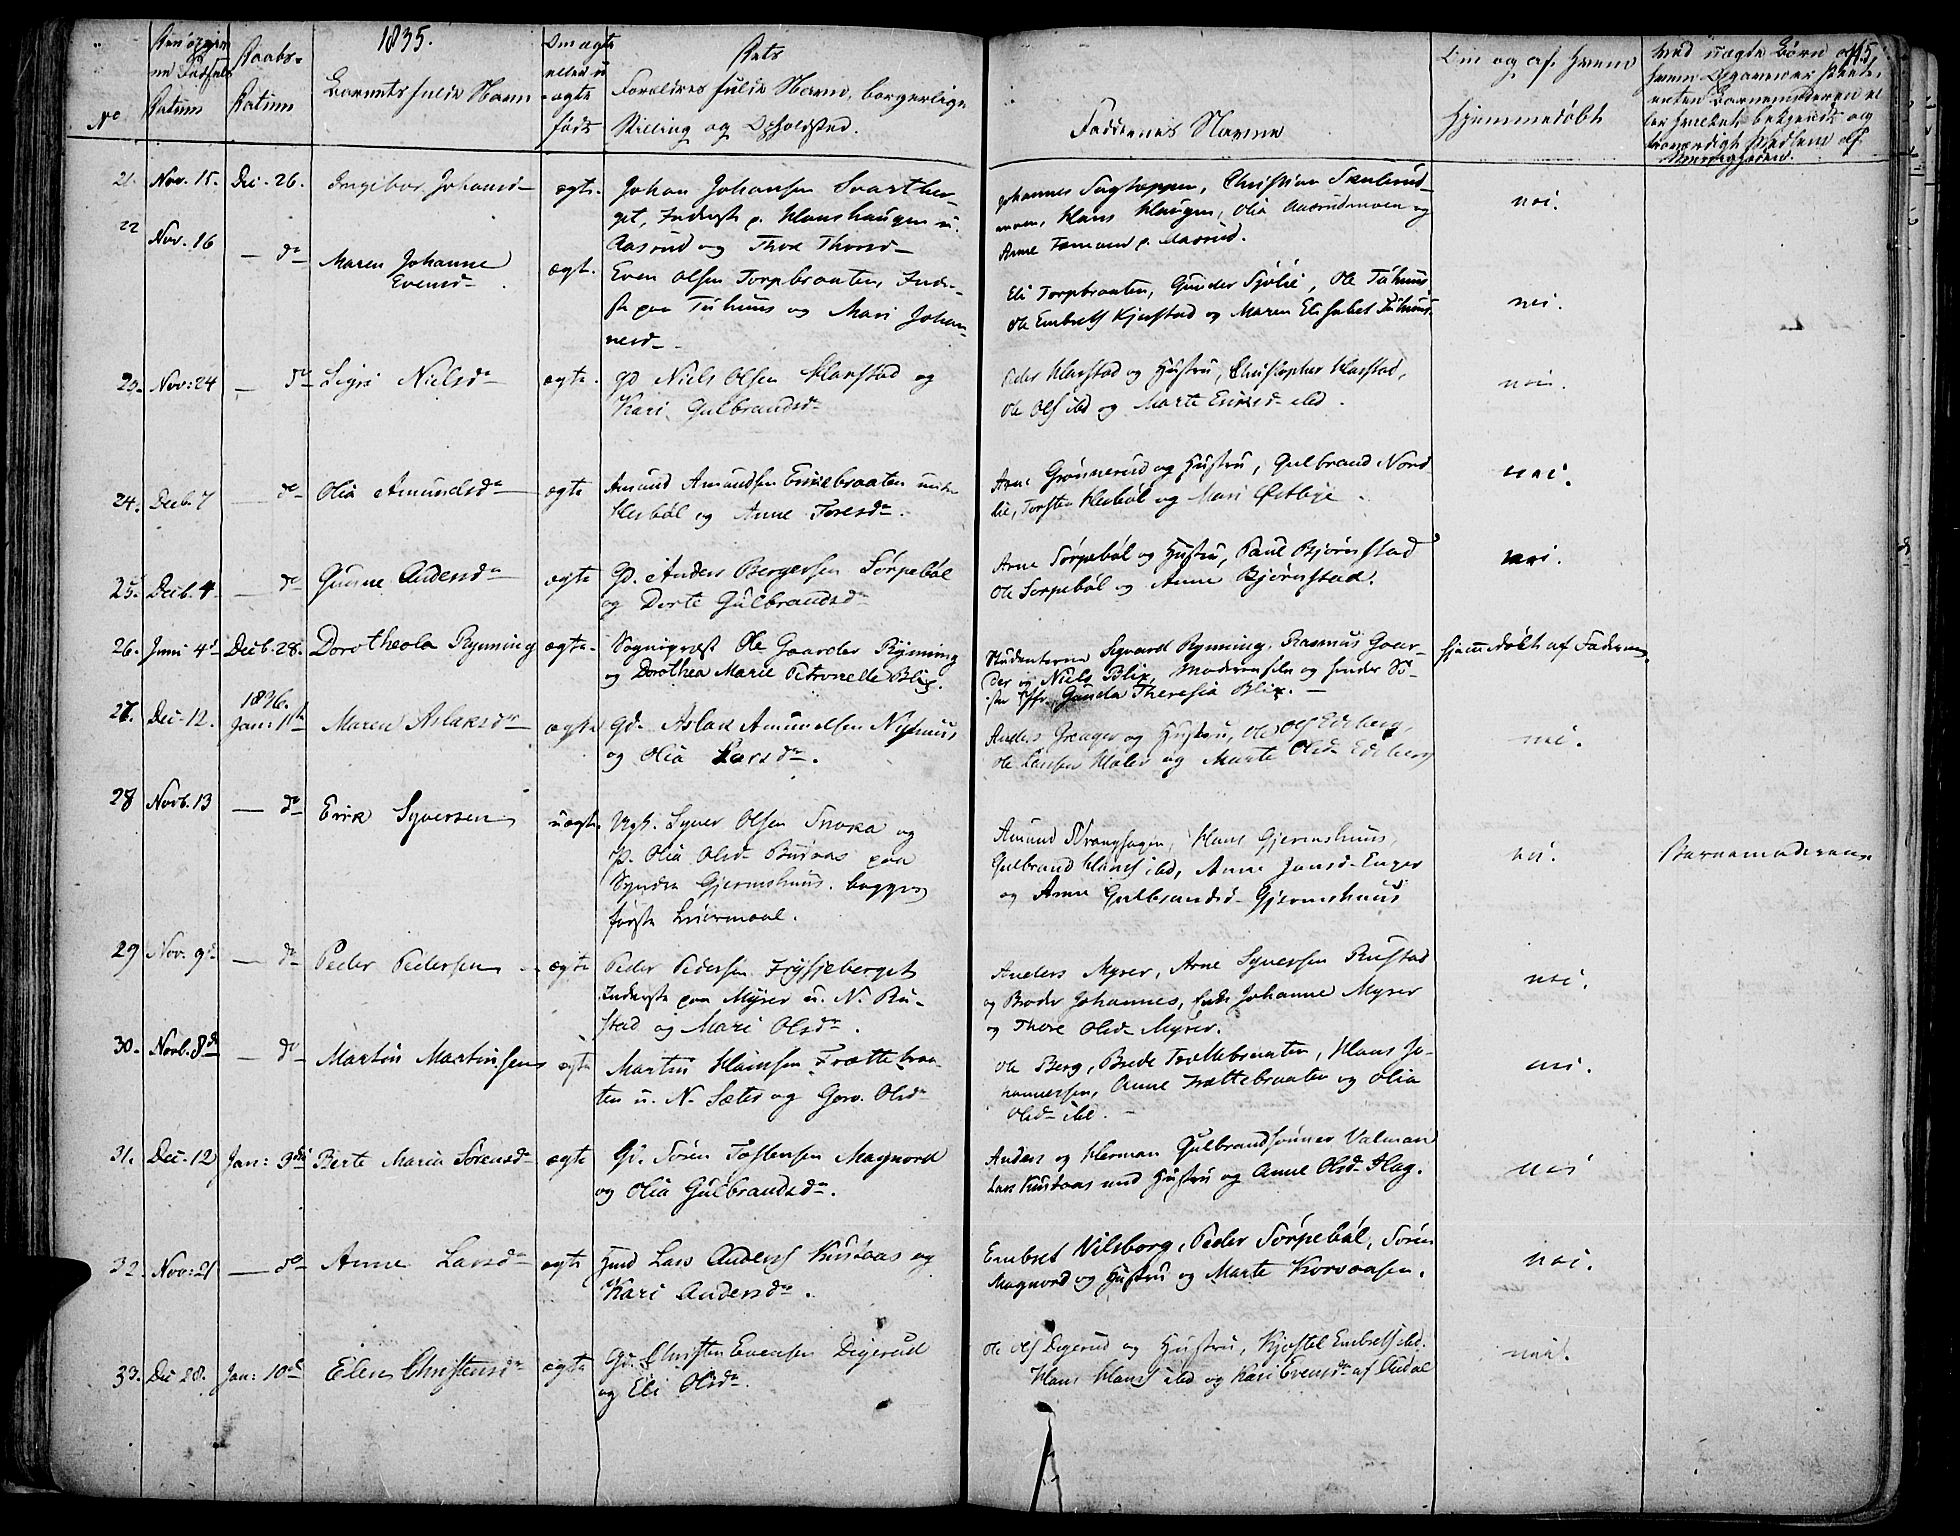 1835.
No
Datum
Daabs-
Datum
Barnets fulde Navn
Om ægte
eller u
ægte
født
Dets
Forældres fulde Navne, borgerlige
Stilling og Opholdsted.
Faddernes Navne
Om og af hvem
hjemmedøbt
21. Nov. 15. Dec. 26. Ingebor Johansd ægte. Johan Johansen Svartber-
get, Inderst p. Klonshaugen u.
Aasrud og Thore Thorsd
Johannes Sagtoppen, Christian
moen, Hans Haugen, Olia Aasrudmoen og
Anne p. Aasrud.
nei.
22 Nov. 16 - do Maren Johanne
Evensd ægt. Even Olsen Torpbraaten, Inder-
st paa Tuhuus og Mari Johan-
nesd
Eli Torpbraaten, Gunder Sjølie, Ole Tuhuus
Ole Embrets Kjerstad og Maren Elisabet Tuhuus.
nei.
23. Nov: 24 - do Sigri Nielsd ægte. Gd Niels Olsen Harstad og
Kari Gulbrandsd
Peder Harstad og Hustru, Christopher Harstad,
Ole Ols ibd og Marte Eriksd ibd.
nei.
24. Decb. 7 - do Olia Amundsd ægte Amund Amundsen Eriksbraaten under
Herbøl og Anne Toresd.
Arne Grønnerud og Hustru, Gulbrand Nord
lie, Torsten Herbøl og Mari Østbye.
nei.
25. Decb. 4. - do Gunne Andersd ægte Gd. Anders Bergersen Sørpebøl
og Dorte Gulbrandsd
Arne Sørpebøl og Hustru, Paul Bjørnstad
Ole Sørpebøl og Anne Bjørnstad.
nei.
26. Juni 4d Decb. 28. Dorothea Rynning ægte. Sognepræst Ole Gaarder Rynning
og Dorothea Marie Petronelle Blix.
Studenterne Sigvard Rynning, Rasmus Gaar-
der og Niels Blix, Moderen selv og hendes Sø-
ster Jfr. Gunda Theresia Blix. -
hjemmedøbt af Faderen
27. Dec. 12. 1836.
Jan: 1ste Maren Aslaksd ægte Gd. Aslak Amundsen Nyhuus
og Olia Larsd.
Anders Græager og Hustru, Ole Ols Edeberg,
Ole Larsen Holer og Marte Olsd Edeberg
nei.
28 Novb. 13 - do Erik Syversen uægte. Ungk. Syver Olsen Snoka og
P. Olia Olsd Buraas paa
Syndre Gjermshuus. begges
første Leiermaal.
Amund Stranghagen, Hans Gjermshuus,
Gulbrand Hans ibd, Anne Jansd Enger
og Anne Gulbrandsd Gjermshuus
nei.
Barnemoderen
29 Nov. 9d - do Peder Pedersen ægte Peder Pedersen Frysjeberget
Inderste paa Myrer u. N. Ru-
stad og Mari Olsd.
Anders Myrer, Arne Syversen Rustad
og Broder Johannes, Johanne Myrer
og Thore Olsd Myrer.
nei.
30. Novb. 8d - do Martin Martinsen ægte Martin Hansen Trættebraa-
ten u. N. Sæter og Goro Olsd
Ole Berg, Brede Trættebraaten, Hans Jo-
hannessen, Anne Trættebraaten og Olia
Olsd ibd. -
nei.
31. Dec. 12 Jan: 3die Berte Maria Sørensd ægte Gd. Søren Tostensen Magnord
og Olia Gulbrandsd.
Anders og Herman Gulbrandsønner Valman
Lars Rustaas med Hustru og Anne Olsd Hag.
nei
32. Nov: 21 - do Anne Larsd ægte Hmd Lars Anders Rustaas og
Kari Andersd.
Embret Vilberg, Peder Sørpebøl, Søren
Magnord og Hustru og Marte Korsaasen.
nei.
33. Dec 28. Jan: 10de Elen Christensd ægte Gd. Christen Evensen Digerud
og Eli Olsd.
Ole Ols Digerud og Hustru, Kjostel Embrets ibd.
Hans Hans ibd og Kari Evensd af Aadal
nei.